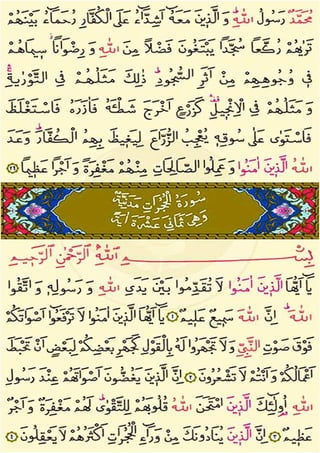 مُحَمَّدٌ رَسُولُ اللهِ وَ الَّذِينَ مَعَهُ أَشِدَّاءُ عَلَى الْكُفَّارِ رُحَمَاءُ بَيْنَهُمْ
تَرَاهُمْ رُكَّعاً سُجَّداً يَبْتَغُونَ فَضْلاً مِنَ اللهِ وَ رِضْوَاناً سِيمَاهُمْ
فِي وُجُوهِهِمْ مِنْ أَثَرِ السُّجُودِ ذٰلِكَ مَثَلُهُمْ فِي التَّوْرَاةِ
وَ مَثَلُهُمْ فِي الْإِنْجِيلِ كَزَرْعٍ أَخْرَجَ شَطْأَهُ فَآزَرَهُ فَاسْتَغْلَظَ
فَاسْتَوَى عَلَى سُوقِهِ يُعْجِبُ الزُّرَّاعَ لِيَغِيظَ بِهِمُ الْكُفَّارَ وَعَدَ
اللهُ الَّذِينَ آمَنُوا وَ عَمِلُوا الصَّالِحَاتِ مِنْهُمْ مَغْفِرَةً وَ أَجْراً عَظِيماً ٢٩
سُورَةُ الْحُجُرَاتِ مَدَنِيَّةٌ
وَهِيَ ثَمَانِي عَشْرَةَ آيَةً
بِسْمِ اللهِ الرَّحْمٰنِ الرَّحِيمِ
يَا أَيُّهَا الَّذِينَ آمَنُوا لَا تُقَدِّمُوا بَيْنَ يَدَيِ اللهِ وَ رَسُولِهِ وَ اتَّقُوا
اللهَ إِنَّ اللهَ سَمِيعٌ عَلِيمٌ ١ يَا أَيُّهَا الَّذِينَ آمَنُوا لَا تَرْفَعُوا أَصْوَاتَكُمْ
فَوْقَ صَوْتِ النَّبِيِّ وَلَا تَجْهَرُوا لَهُ بِالْقَوْلِ كَجَهْرِ بَعْضِكُمْ لِبَعْضٍ أَنْ تَحْبَطَ
أَعْمَالُكُمْ وَ أَنْتُمْ لَا تَشْعُرُونَ ٢ إِنَّ الَّذِينَ يَغُضُّونَ أَصْوَاتَهُمْ عِنْدَ رَسُولِ
اللهِ أُولٰئِكَ الَّذِينَ امْتَحَنَ اللهُ قُلُوبَهُمْ لِلتَّقْوَى لَهُمْ مَغْفِرَةٌ وَ أَجْرٌ
عَظِيمٌ ٣ إِنَّ الَّذِينَ يُنَادُونَكَ مِنْ وَرَاءِ الْحُجُرَاتِ أَكْثَرُهُمْ لَا يَعْقِلُونَ ٤